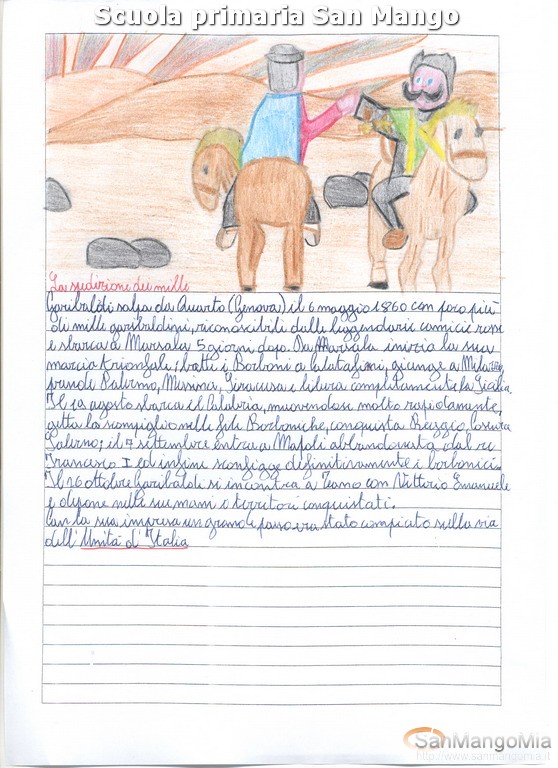 Scuola primaria San Mango
La spedizione dei mille
Garibaldi salpa da Quarto (Genova) il 6 maggio 1860 con poco più
di mille garibaldini, riconoscibili dalle leggendarie camicie rosse
e sbarca a Marsala 5 giorni dopo. Da Marsala inizia la sua
marcia trionfale; batte i Borboni a Calatafimi, giunge a Milazzo,
prende Palermo, Messina, Siracusa e libera completamente la Sicilia.
Il 19 agosto sbarca il Calabria, muovendosi molto rapidamente,
getta lo scompiglio nelle file Borboniche, conquista Reggio, Cosenza
Salerno; il 7 settembre entra a Napoli abbandonata dal re
Francesco I ed infine sconfigge definitivamente i borbonici.
Il 26 ottobre Garibaldi si incontra a Teano con Vittorio Emanuele
e depone nelle sue mani i territori conquistati.
Con la sua impresa un grande passo era stato compiuto sulla via
dell'Unità d'Italia
SanMangoMia
http://www.sanmangomia.it